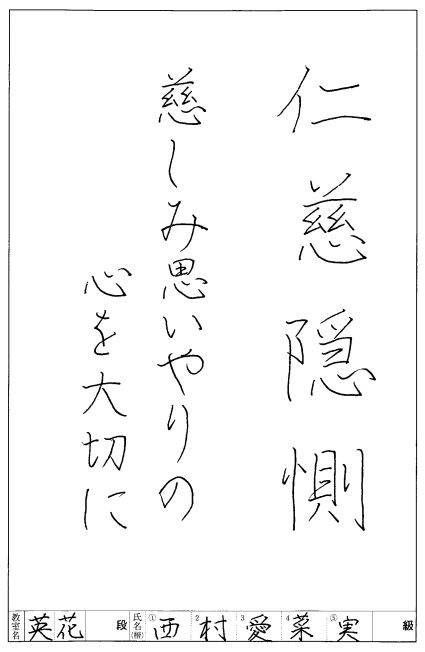 仁慈隠惻
慈しみ思いやりの
心を大切に
教室名 英花 段 氏名(雅) ①西 2村 3愛 4菜 ⑤実 級